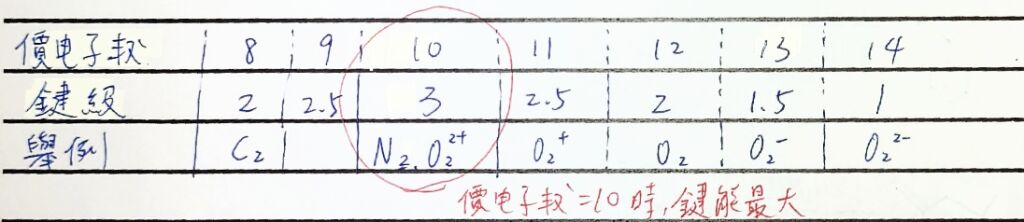 價电子數 8 9 10 11 12 13 14
鍵級 2 2.5 3 2.5 2 1.5 1
舉例 C₂ N₂, O₂²⁺ O₂⁺ O₂ O₂⁻ O₂²⁻
價电子數=10時,鍵能最大